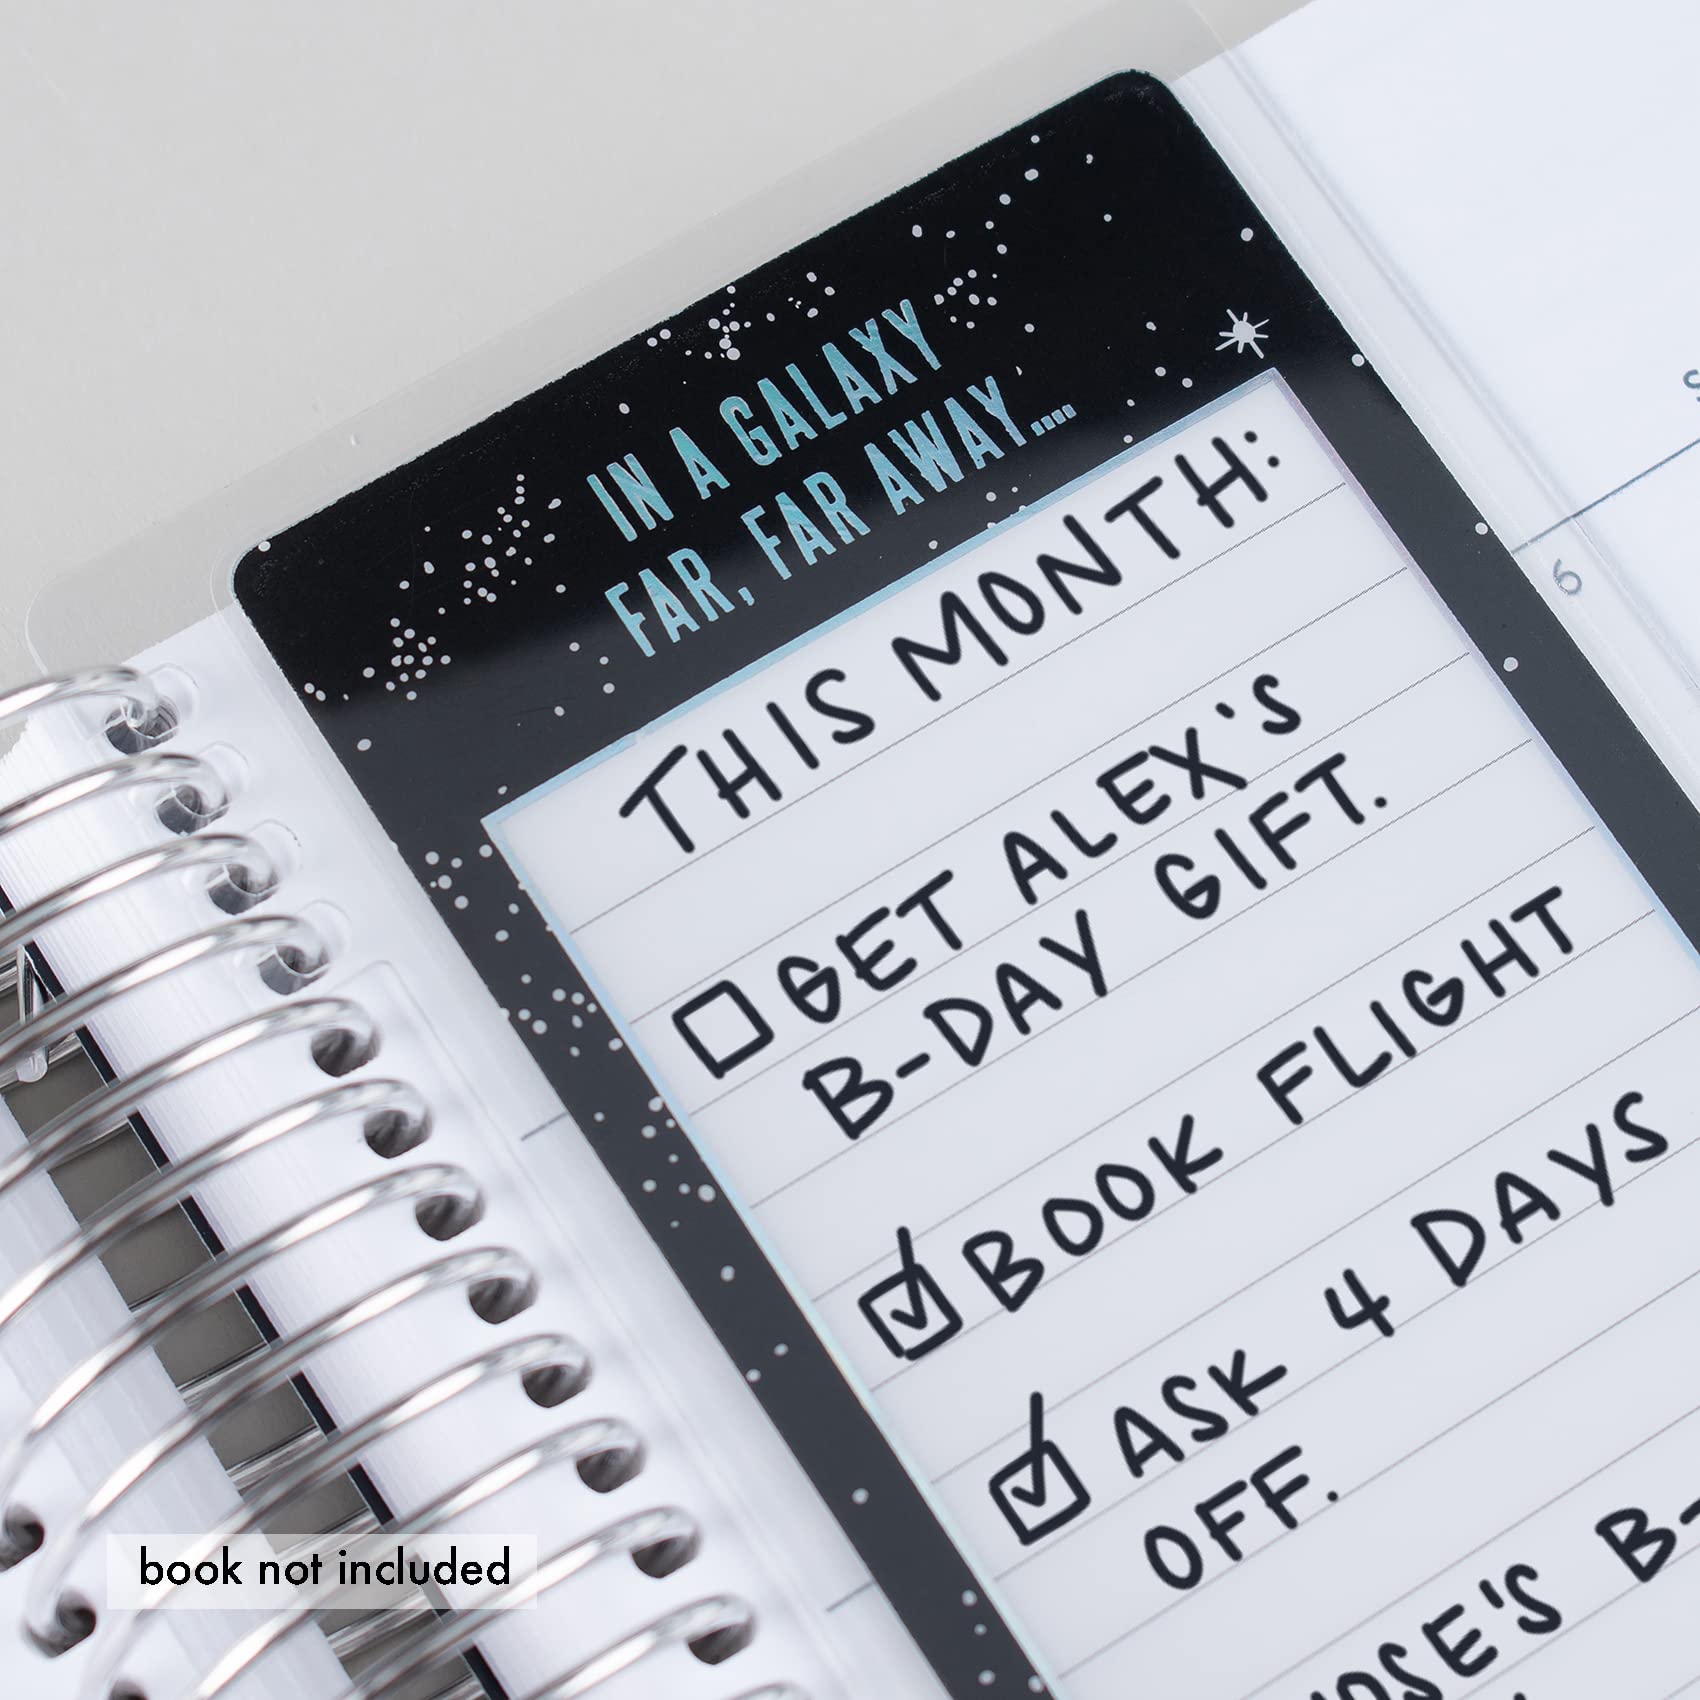 IN A GALAXY
FAR, FAR AWAY....
THIS MONTH:
GET ALEX'S
B-DAY GIFT.
BOOK FLIGHT
ASK 4 DAYS
OFF.
B-
6
book not included